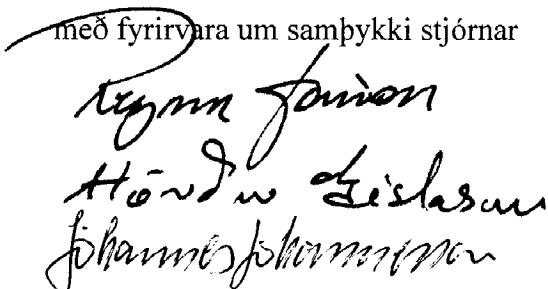 með fyrirvara um samþykki stjórnar
Jónsson
Hörður Gíslason
Jóhannes Jóhannesson